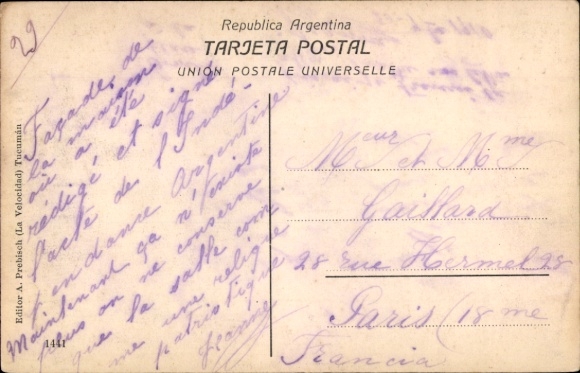 29
Republica Argentina
TARJETA POSTAL
UNIÓN POSTALE UNIVERSELLE
Editor A. Prebisch (La Velocidad) Tucumán
1441
Façade de
la maison
où a été
rédigé et signé
l'acte de l'Indé-
pendance Argentine
Maintenant ça n'existe
plus on ne conserve
que la salle com
me une relique
patriotique
Jeanne
Meur et Mme
Gaillard
28 rue Hermel 28
Paris (18 me
Francia